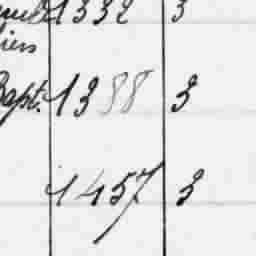 1332 3
iers
Bapt. 1388 3
1457 3